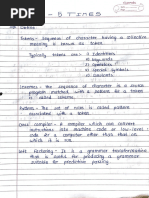 - 5 TIMES
Define
Tokens - Sequence of character having a collective
meaning is known as token.
Typically tokens are - 1) Identifiers
2) keywords
3) operators
4) special symbols
5) constants
Lexemes - The sequence of character in a source
program matched with a pattern for a token
is called lexeme.
Pattern - The set of rules is called pattern
associated with a token.
Cross compiler - A compiler which can convert
instructions into machine code or low-level
code for a computer other than that on
which it is run.
Left Factoring - It is a grammar transformation
that is useful for producing a grammar
suitable for predictive parsing.